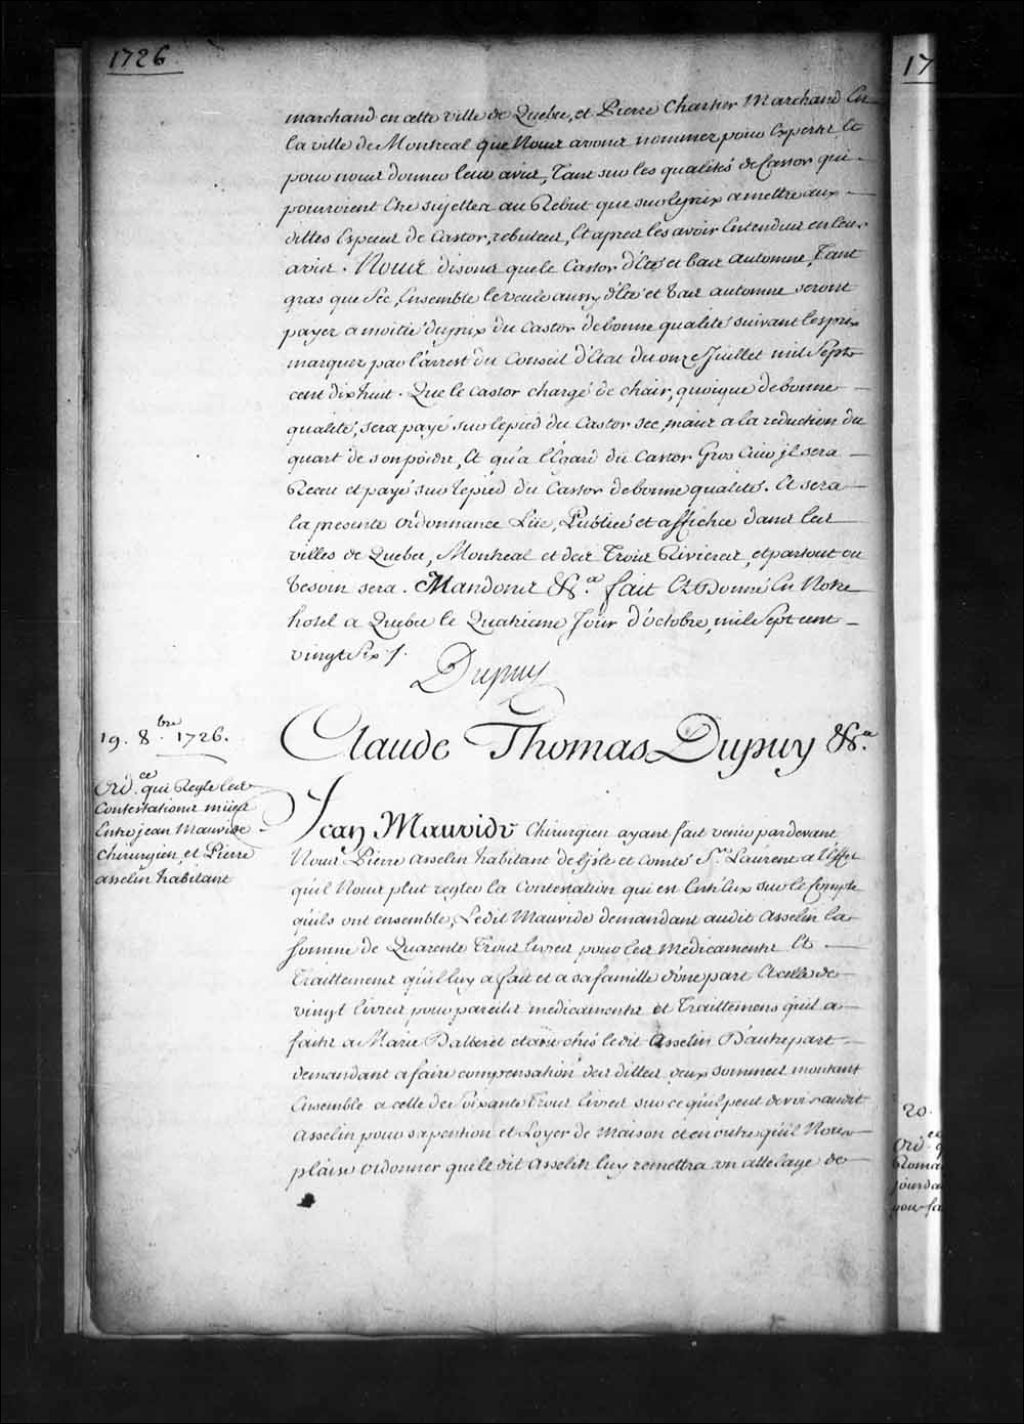 1726
marchand en cette ville de Quebec, et Pierre Chartier Marchand En
la ville de Montreal que Nous avons nommez pour Experts Et
pour nous donner leur avis, Tant sur les qualités de Castor qui
pourroient Etre sujettes au Rebut que sur le prix a mettre aux
dittes Especes de Castor, rebutées, Et apres les avoir Entendus en leur
avis. Nous disons que le Castor d'Eté et bas automne, Tant
gras que Sec, Ensemble le veule aussy d'Eté et bas automne seront
payez a moitié du prix du Castor de bonne qualité suivant les prix
marquez par l'arrest du Conseil d'Etat du onze Juillet mil Sept
cent dix huit. Que le Castor chargé de chair, quoique de bonne
qualité, sera payé sur le pied du Castor sec, mais a la reduction du
quart de son poids, Et qu'a l'Egard du Castor Gros Cuir il sera
Receu et payé sur le pied du Castor de bonne qualité. Et sera
la presente ordonnance Lüe, Publiée et affichée dans les
villes de Quebec, Montreal et des Trois Rivieres, et partout ou
besoin sera. Mandons &c.a fait Et Donné En Notre
hotel a Quebec le Quatrieme Jour d'octobre, mil Sept cent
vingt Six /.
Dupuy
19. 8.bre 1726.
Claude Thomas Dupuy &c.a
Ord.ce qui Regle les
Contestations miies
Entre jean Mauvide
chirurgien, et Pierre
asselin habitant
Jean Mauvide Chirurgien ayant fait venir pardevant
Nous Pierre asselin habitant de l'isle et Comté St. Laurent a l'Effet
qu'il Nous plut regler la Contestation qui est Entr'Eux sur le Compte
qu'ils ont ensemble, Ledit Mauvide demandant audit Asselin la
somme de Quarente Trois livres pour les Medicaments Et
Traittemens qu'il luy a fait et a sa famille d'une part Et celle de
vingt livres pour pareils medicaments et Traittemens qu'il a
faits a Marie Dalberet etant chés ledit Asselin D'autre part
demandant a faire compensation des dittes deux sommes montant
Ensemble a celle de Soixante Trois livres sur ce qu'il peut devoir audit
Asselin pour sa pention et Loyer de Maison et en outre qu'il Nous
plaise ordonner que le dit Asselin luy remettra un attelage de
17
20.
Ord.ce q
Roma
jourda
pour fa